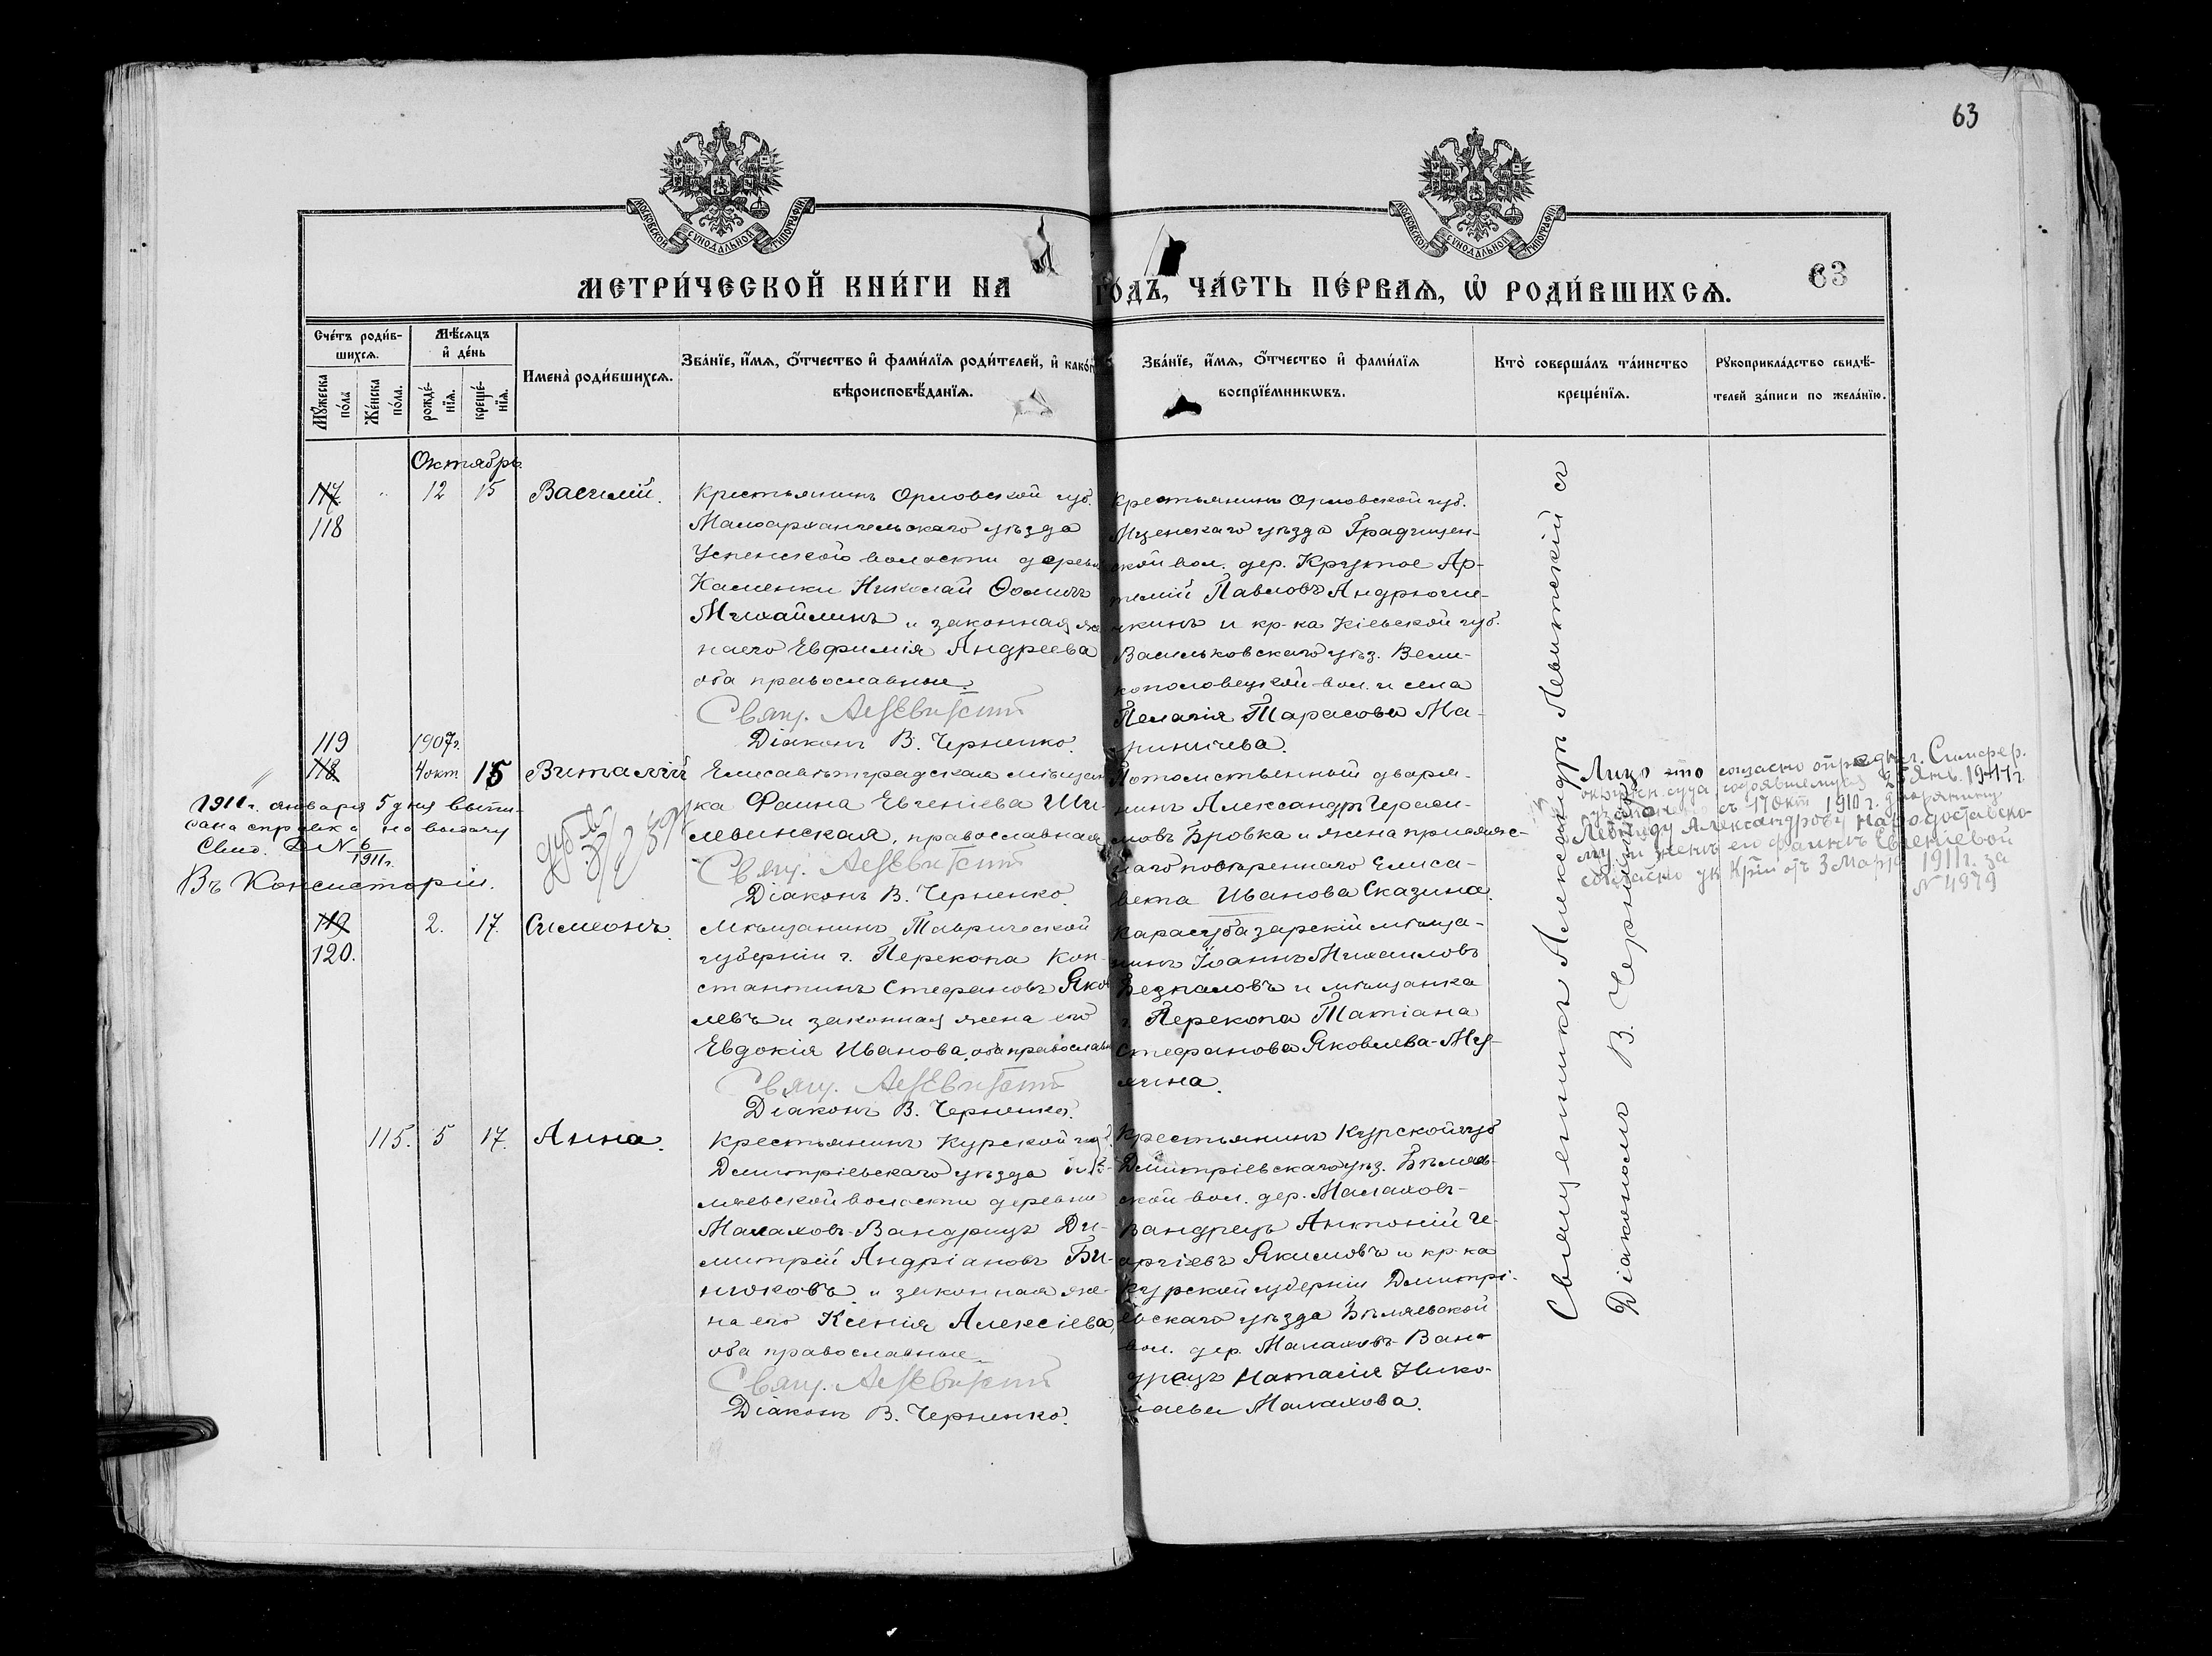 63
МОСКОВСКОЙ СѴНОДАЛЬНОЙ ТИПОГРАФІИ
МОСКОВСКОЙ СѴНОДАЛЬНОЙ ТИПОГРАФІИ
МЕТРИ́ЧЕСКОЙ КНИ́ГИ НА
ГО́ДЪ, ЧА́СТЬ ПЕ́РВАѦ, Ѡ҆ РОДИ́ВШИХСѦ.
63
Сче́тъ роди́в-
шихсѧ.
Мѣ́сѧцъ
и҆ де́нь
Мꙋ́жеска
по́ла
Же́нска
по́ла.
рожде́-
нїѧ.
креще́-
нїѧ.
Имена̀ роди́вшихсѧ.
Зва́нїе, и҆́мѧ, ѻ҆́тчество и҆ фами́лїѧ роди́телей, и҆ како́гѡ
вѣроисповѣ́данїѧ.
Зва́нїе, и҆́мѧ, ѻ҆́тчество и҆ фами́лїѧ
воспрїе́мникѡвъ.
Кто̀ соверша́лъ та́инство
креще́нїѧ.
Рꙋкоприкла́дство свидѣ́-
телей за́писи по жела́нїю.
Октябрь
117 " 12 15 Василій.
118
Крестьянинъ Орловской губ.
Малоархангельскаго уѣзда
Успенской волости деревни
Каменки Николай Ѳоминъ
Михайлинъ и законная же
на его Евфимія Андреева
оба православные.
Свящ. Ал. Левитскій
Діаконъ В. Черненко.
Крестьянинъ Орловской губ.
Мценскаго уѣзда Градищен-
ской вол. дер. Крутое Ар-
темій Павловъ Андрюши-
чкинъ и кр-ка Кіевской губ.
Васильковскаго уѣз. Вели-
кополовецкой вол. и села
Пелагія Тарасова Ма-
риничева.
119 1907г.
118 4 окт 15 Виталій
Елисаветградская мѣщан
ка Фаина Евгеніева Ши-
левинская, православная
Свящ. Ал. Левитскій
Діаконъ В. Черненко.
Потомственный дворя-
нинъ Александръ Гераси-
мовъ Бровка и жена присяж-
наго повѣреннаго Елиса-
вета Иванова Сказина.
1911г. января 5 дня выпи-
сана справка на выдачу
Свид. № 6
1911г.
Въ Консисторіи.
Лицо это согласно опредѣл. Симфер.
окружн. суда состоявшемуся 25 Янв. 1911г.
узаконено съ 17 окт 1910г. дворянину
Леониду Александрову
и женѣ его Фаинѣ Евгеніевой
согласно ук Крій отъ 3 Марта 1911г. за
N 4979
119 2. 17. Симеонъ.
120.
Мѣщанинъ Таврической
губерніи г. Перекопа Кон-
стантинъ Стефановъ Яков
левъ и законная жена его
Евдокія Иванова, оба православн
Свящ. Ал. Левитскій
Діаконъ В. Черненко.
Карасубазарскій мѣща-
нинъ Іоаннъ Михаиловъ
Безпаловъ и мѣщанка
г. Перекопа Татіана
Стефанова Яковлева-Му-
хина.
115. 5 17. Анна.
Крестьянинъ Курской губ.
Дмитріевскаго уѣзда Бѣ-
ляевской волости деревни
Малахов-Вандрецъ Ди-
митрій Андріановъ Би-
нюковъ и законная же-
на его Ксенія Алексіева,
оба православные.
Свящ. Ал. Левитскій
Діаконъ В. Черненко.
Крестьянинъ Курской губ
Дмитріевскаго уѣз. Бѣляев-
ской вол. дер. Малаховъ-
Вандрецъ Антоній Ге-
оргіевъ Якимовъ и кр-ка
Курской губерніи Дмитрі-
евскаго уѣзда Бѣляевской
вол. дер. Малаховъ Ван-
дрецъ Наталія Нико-
лаева Малахова.
Священникъ Александръ Левитскій съ
Діакономъ В. Черненко